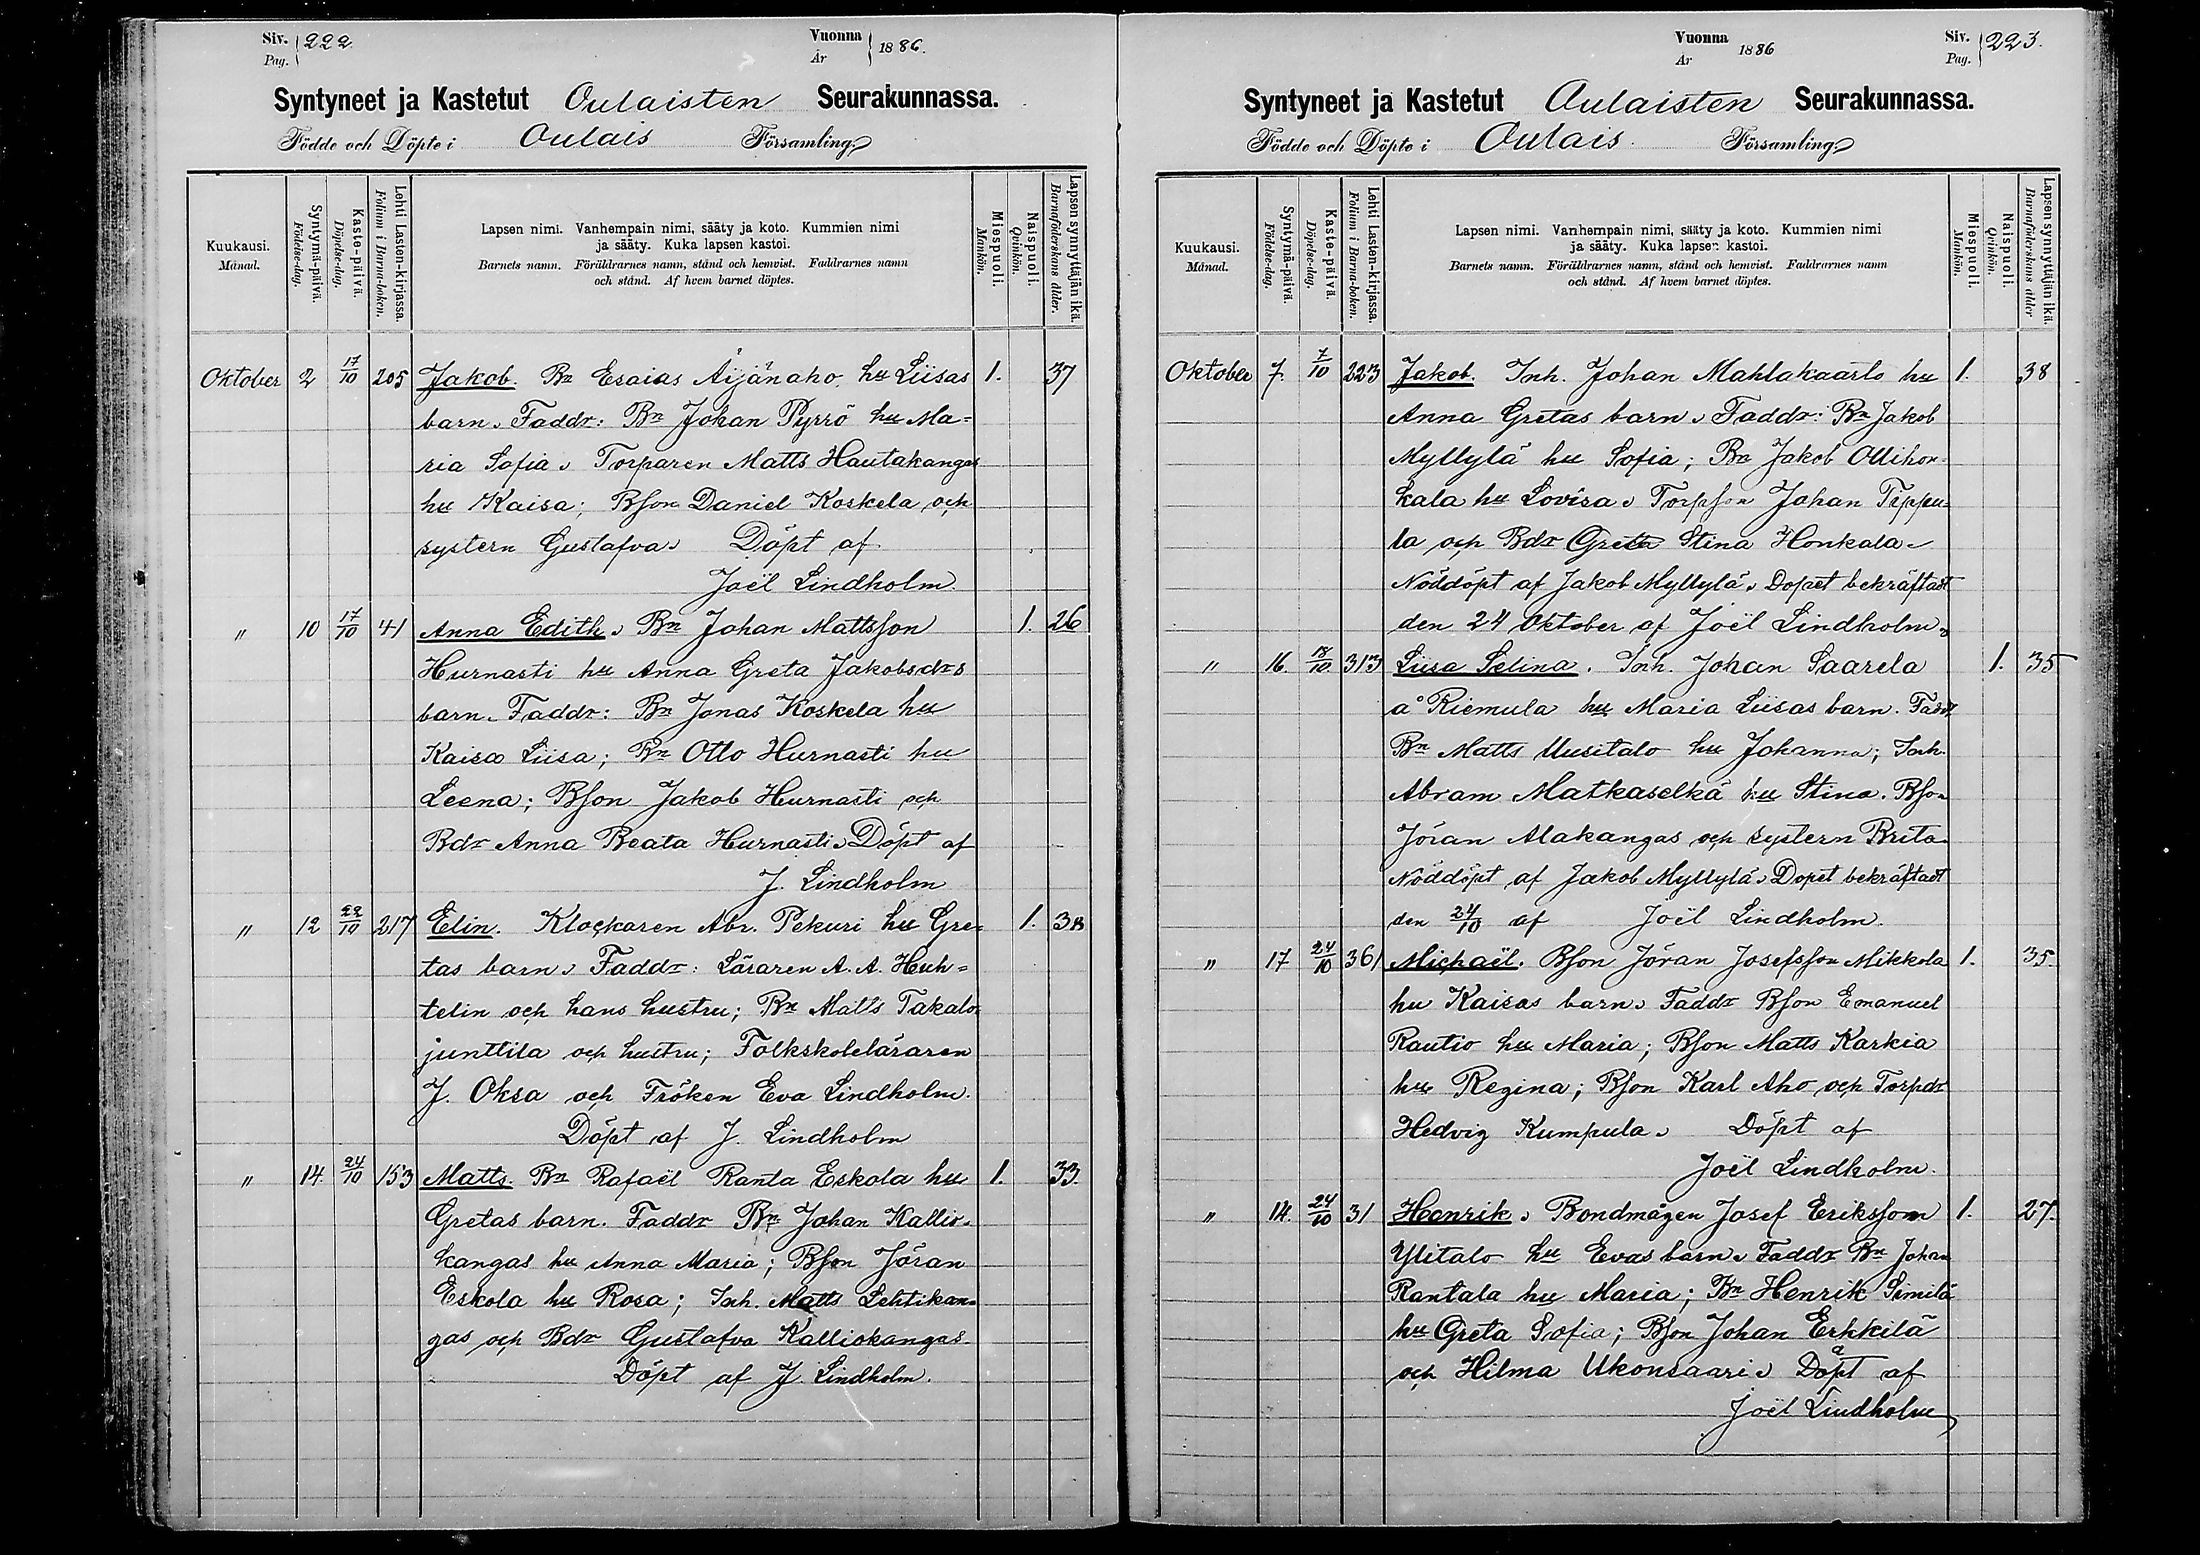 Siv. Pag. 222.
Vuonna År 1886.
Syntyneet ja Kastetut Oulaisten Seurakunnassa.
Födde och Döpte i Oulais Församling
Kuukausi. Månad.
Syntymä-päivä. Födelse-dag.
Kaste-päivä. Döpelse-dag.
Lehti Lasten-kirjassa. Folium i Barna-boken.
Lapsen nimi. Vanhempain nimi, sääty ja koto. Kummien nimi
ja sääty. Kuka lapsen kastoi.
Barnets namn. Föräldrarnes namn, stånd och hemvist. Faddrarnes namn
och stånd. Af hvem barnet döptes.
Miespuoli. Mankön.
Naispuoli. Qvinkön.
Lapsen synnyttäjän ikä. Barnaföderskans ålder.
Oktober 2 17/10 205 Jakob. Bn Esaias Äijänaho hu Liisas 1. 37
barn. Faddr: Bn Johan Pyrrö hu Ma=
ria Sofia, Torparen Matts Hautakangas
hu Kaisa; Bson Daniel Koskela och
systern Gustafva. Döpt af
Joël Lindholm.
" 10 17/10 41 Anna Edith. Bn Johan Mattsson 1. 26
Hurnasti hu Anna Greta Jakobsdrs
barn. Faddr: Bn Jonas Koskela hu
Kaisa Liisa; Bn Otto Hurnasti hu
Leena; Bson Jakob Hurnasti och
Bdr Anna Beata Hurnasti. Döpt af
J. Lindholm
" 12 22/10 217 Elin. Klockaren Abr. Pekuri hu Gre= 1. 38
tas barn. Faddr: Läraren A. A. Huh=
telin och hans hustru; Bn Matts Takalo=
junttila och hustru; Folkskoleläraren
J. Oksa och Fröken Eva Lindholm.
Döpt af J. Lindholm
" 14. 24/10 153 Matts. Bn Rafaël Ranta Eskola hu 1. 33.
Gretas barn. Faddr Bn Johan Kallio=
kangas hu Anna Maria; Bson Jöran
Eskola hu Rosa; Inh. Matts Lehtikan=
gas och Bdr Gustafva Kalliokangas.
Döpt af J. Lindholm.
Vuonna År 1886
Siv. Pag. 223.
Syntyneet ja Kastetut Oulaisten Seurakunnassa.
Födde och Döpte i Oulais. Församling
Kuukausi. Månad.
Syntymä-päivä. Födelse-dag.
Kaste-päivä. Döpelse-dag.
Lehti Lasten-kirjassa. Folium i Barna-boken.
Lapsen nimi. Vanhempain nimi, sääty ja koto. Kummien nimi
ja sääty. Kuka lapsen kastoi.
Barnets namn. Föräldrarnes namn, stånd och hemvist. Faddrarnes namn
och stånd. Af hvem barnet döptes.
Miespuoli. Mankön.
Naispuoli. Qvinkön.
Lapsen synnyttäjän ikä. Barnaföderskans ålder
Oktober 7. 7/10 223 Jakob. Inh. Johan Mahlakaarto hu 1. 38
Anna Gretas barn. Faddr: Bn Jakob
Myllylä hu Sofia; Bn Jakob Ollihon=
kala hu Lovisa. Torpson Johan Tippu=
la och Bdr Greta Stina Honkala.
Nöddöpt af Jakob Myllylä. Dopet bekräftadt
den 24 Oktober af Joël Lindholm.
" 16. 18/10 313 Liisa Selina. Inh. Johan Saarela 1. 35
å Riemula hu Maria Liisas barn. Faddr
Bn Matts Uusitalo hu Johanna; Inh.
Abram Matkaselkä hu Stina. Bson
Jöran Alakangas och systern Brita.
Nöddöpt af Jakob Myllylä. Dopet bekräftadt
den 24/10 af Joël Lindholm.
" 17 24/10 361 Michaël. Bson Jöran Josefsson Mikkola 1. 35.
hu Kaisas barn. Faddr Bson Emanuel
Rautio hu Maria; Bson Matts Karkia
hu Regina; Bson Karl Aho och Torpdr
Hedvig Kumpula. Döpt af
Joël Lindholm.
" 14. 24/10 31 Henrik. Bondmågen Josef Eriksson 1. 27.
Ylitalo hu Evas barn. Faddr Bn Johan
Rantala hu Maria; Bn Henrik Similä
hu Greta Sofia; Bson Johan Erkkilä
och Hilma Ukonsaari. Döpt af
Joël Lindholm